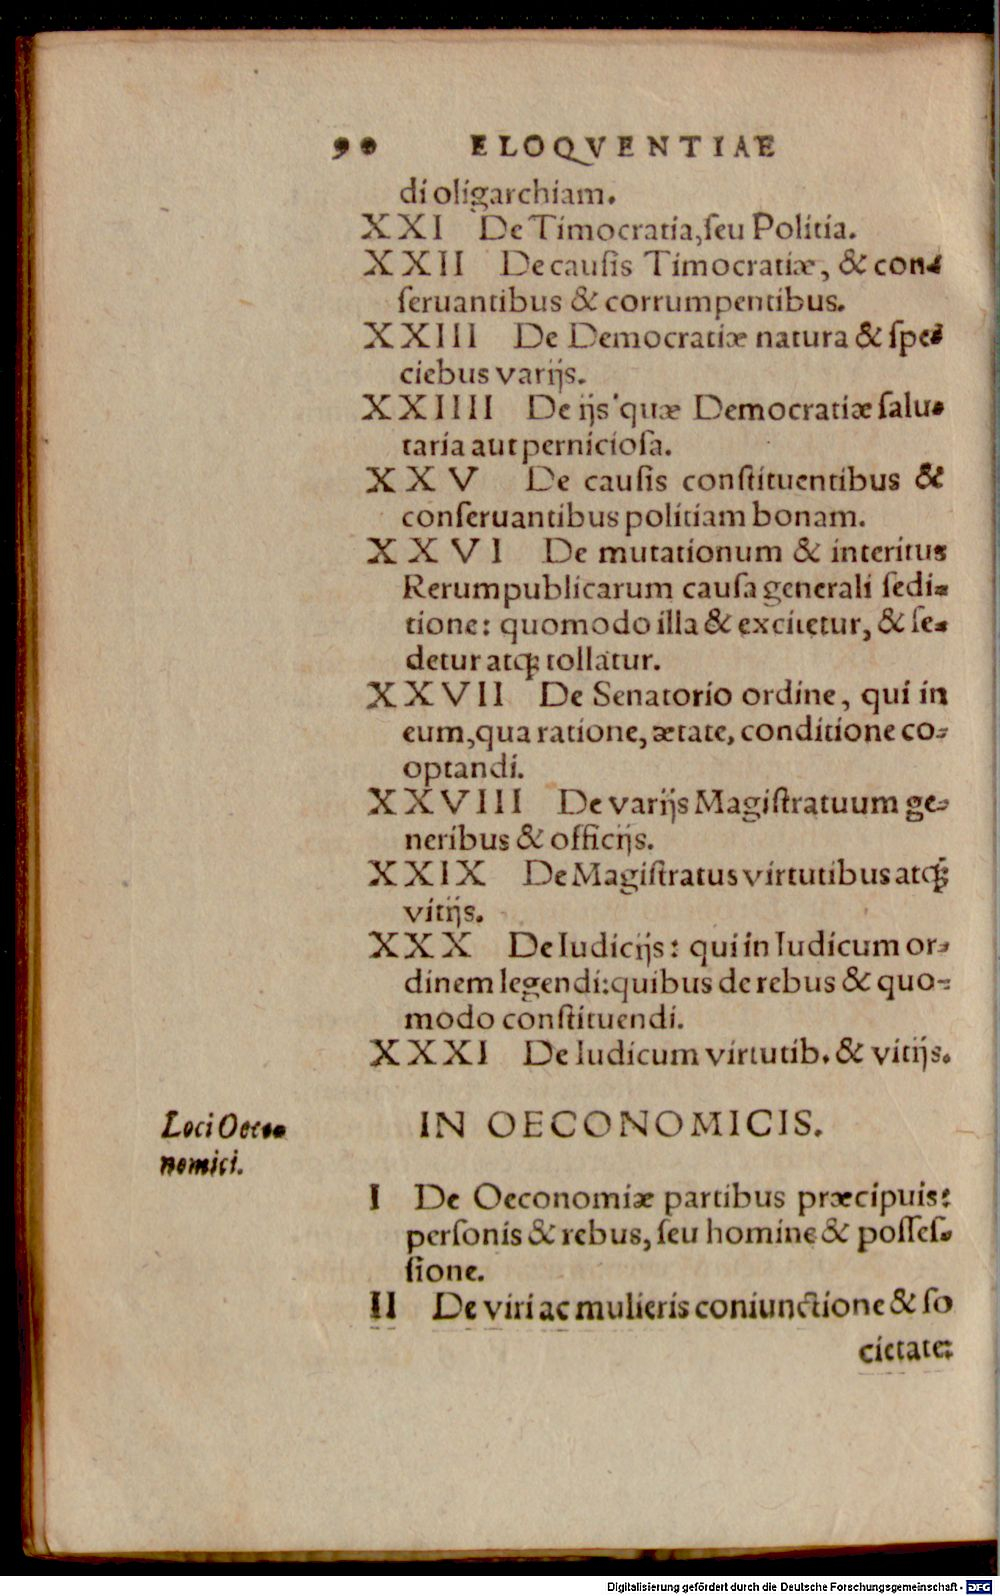 90 ELOQVENTIAE
di oligarchiam.
XXI De Timocratia, ſeu Politia.
XXII De cauſis Timocratiæ, & con-
ſeruantibus & corrumpentibus.
XXIII De Democratiæ natura & ſpe-
ciebus varijs.
XXIIII De ijs quæ Democratiæ ſalu-
taria aut pernicioſa.
XXV De cauſis conſtituentibus &
conſeruantibus politiam bonam.
XXVI De mutationum & interitus
Rerumpublicarum cauſa generali ſedi-
tione: quomodo illa & excitetur, & ſe-
detur atq; tollatur.
XXVII De Senatorio ordine, qui in
eum, qua ratione, ætate, conditione co-
optandi.
XXVIII De varijs Magiſtratuum ge-
neribus & officijs.
XXIX De Magiſtratus virtutibus atq;
vitijs.
XXX De Iudicijs: qui in Iudicum or-
dinem legendi: quibus de rebus & quo-
modo conſtituendi.
XXXI De Iudicum virtutib. & vitijs.
Loci Oeco-
nomici.
IN OECONOMICIS.
I De Oeconomiæ partibus præcipuis:
perſonis & rebus, ſeu homine & poſſeſ-
ſione.
II De viri ac mulieris coniunctione & ſo
cietate:
Digitalisierung gefördert durch die Deutsche Forschungsgemeinschaft - DFG